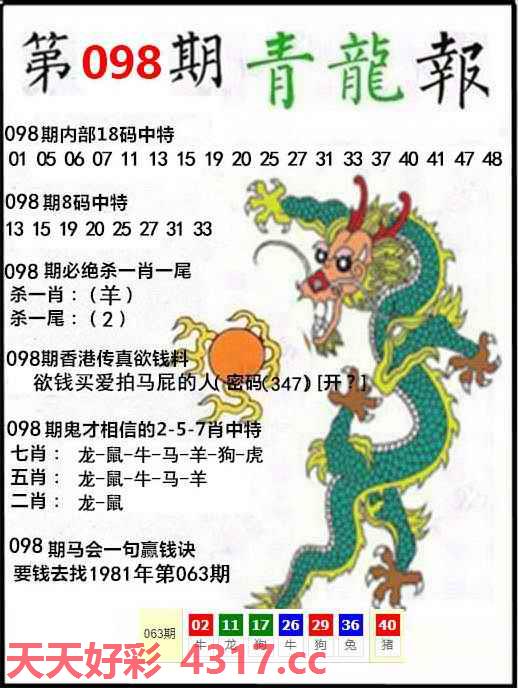 第098期青龍報
098期内部18码中特
01 05 06 07 11 13 15 19 20 25 27 31 33 37 40 41 47 48
098期8码中特
13 15 19 20 25 27 31 33
098 期必绝杀一肖一尾
杀一肖：（羊）
杀一尾：（2）
098期香港传真欲钱料
欲钱买爱拍马屁的人(密码(347)[开？]
098期鬼才相信的2-5-7肖中特
七肖： 龙-鼠-牛-马-羊-狗-虎
五肖： 龙-鼠-牛-马-羊
二肖： 龙-鼠
098期马会一句赢钱诀
要钱去找1981年第063期
063期 02 11 17 26 29 36 40
牛 龙 狗 牛 狗 兔 猪
天天好彩 4317.cc